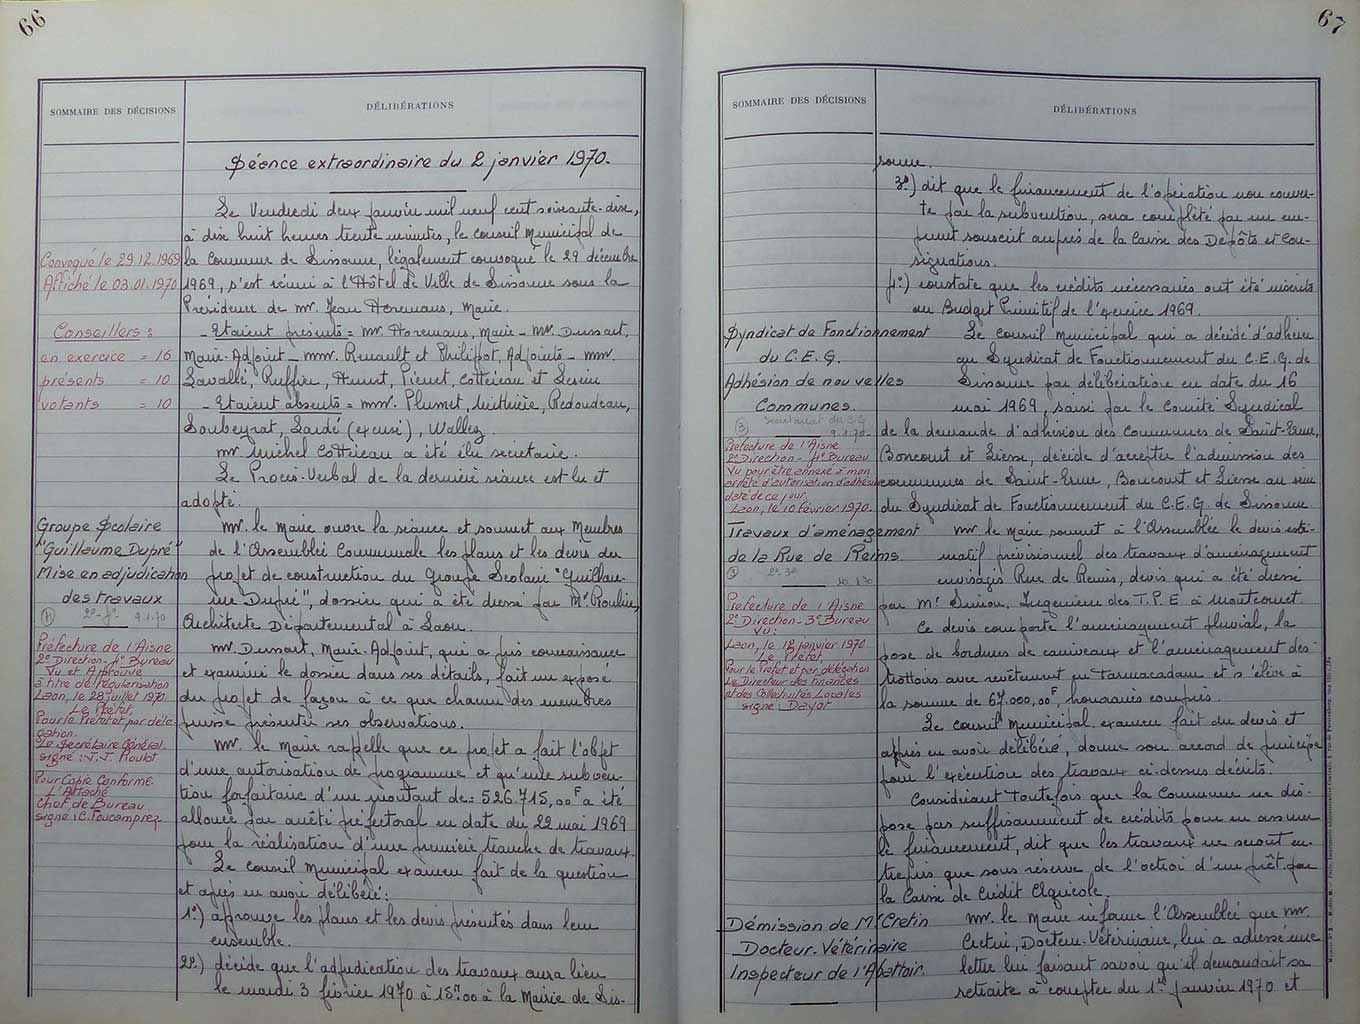 66
SOMMAIRE DES DÉCISIONS
DÉLIBÉRATIONS
Séance extraordinaire du 2 janvier 1970.
Le Vendredi deux janvier mil neuf cent soixante-dix,
à dix huit heures trente minutes, le conseil Municipal de
la Commune de Sissonne, légalement convoqué le 29 décembre
1969, s'est réuni à l'Hôtel de Ville de Sissonne sous la
Présidence de mr. Jean Horemans, Maire.
- Etaient présents = mr. Horemans, Maire - mr. Dussart,
Maire-Adjoint - mm. Renault et Philippot, Adjoints - mm.
Lavallé, Ruffier, Hunut, Piénet, Cottereau et
- Etaient absents = mm. Plumet, Redoudeau,
Soubeyrat, (excusé), Wallez.
mr. Michel Cottereau a été élu secrétaire.
Le Procès-Verbal de la dernière séance est lu et
adopté.
Convoqué le 29.12.1969
Affiché le 03.01.1970
Conseillers :
en exercice = 16
présents = 10
votants = 10
Groupe Scolaire
"Guillaume Dupré"
Mise en adjudication
des travaux
9.1.70
Préfecture de l'Aisne
2e Direction - 4e Bureau
Vu et Approuvé
à titre de régularisation
Laon, le 28 juillet 1970
Le Préfet,
Pour le Préfet et par délé
gation.
Le Secrétaire Général.
signé : J.J. Roulot
Pour Copie Conforme
L'Attaché
Chef de Bureau
signé : C. Foucamprez
mr. le Maire ouvre la séance et soumet aux Membres
de l'Assemblée Communale les plans et les devis du
projet de construction du Groupe Scolaire "Guillau-
me Dupré", dossier qui a été dressé par Mr Roulin,
Architecte Départemental à Laon.
mr. Dussart, Maire-Adjoint, qui a pris connaissance
et examiné le dossier dans ses détails, fait un exposé
du projet de façon à ce que chacun des membres
puisse présenter ses observations.
mr. le Maire rappelle que ce projet a fait l'objet
d'une autorisation de programme et qu'une subven-
tion forfaitaire d'un montant de : 526.715,00F a été
allouée par arrêté préfectoral en date du 22 mai 1969
pour la réalisation d'une première tranche de travaux.
Le conseil Municipal examen fait de la question
et après en avoir délibéré :
1°) approuve les plans et les devis présentés dans leur
ensemble.
2°) décide que l'adjudication des travaux aura lieu
le mardi 3 février 1970 à 15H00 à la Mairie de Sis-
67
SOMMAIRE DES DÉCISIONS
DÉLIBÉRATIONS
sonne.
3°) dit que le financement de l'opération non couver-
te par la subvention, sera complété par un em-
prunt souscrit auprès de la Caisse des Dépôts et Con-
signations.
4°) constate que les crédits nécessaires ont été inscrits
au Budget Primitif de l'exercice 1969.
Syndicat de Fonctionnement
du C.E.G.
Adhésion de nouvelles
Communes.
9.1.70
Préfecture de l'Aisne
2e Direction - 4e Bureau
Vu pour être annexé à mon
arrêté d'autorisation d'adhésion
date de ce jour.
Laon, le 10 février 1970
Le conseil Municipal qui a décidé d'adhérer
au Syndicat de Fonctionnement du C.E.G. de
Sissonne par délibération en date du 16
mai 1969, saisi par le Comité Syndical
de la demande d'adhésion des Communes de Saint-Erme,
Boncourt et Liesse, décide d'accepter l'admission des
communes de Saint-Erme, Boncourt et Liesse au sein
du Syndicat de Fonctionnement du C.E.G. de Sissonne
Travaux d'aménagement
de la Rue de Reims
Préfecture de l'Aisne
2e Direction - 3e Bureau
Vu :
Laon, le 12 janvier 1970
Le Préfet,
Pour le Préfet et par délégation
Le Directeur des Finances
et des Collectivités Locales
signé : Dayot
mr. le Maire soumet à l'Assemblée le devis esti-
matif prévisionnel des travaux d'aménagement
envisagés Rue de Reims, devis qui a été dressé
par Mr Simon, Ingénieur des T.P.E à Montcornet
Ce devis comporte l'aménagement pluvial, la
pose de bordures de caniveaux et l'aménagement des
trottoirs avec revêtement en Tarmacadam et s'élève à
la somme de 67.000,00F, honoraires compris.
Le conseil Municipal examen fait du devis et
après en avoir délibéré, donne son accord de principe
pour l'exécution des travaux ci-dessus décrits.
Considérant toutefois que la Commune ne dis-
pose pas suffisamment de crédits pour en assurer
le financement, dit que les travaux ne seront en-
trepris que sous réserve de l'octroi d'un prêt par
la Caisse de Crédit Agricole.
Démission de Mr Cretin
Docteur-Vétérinaire
Inspecteur de l'Abattoir.
mr. le Maire informe l'Assemblée que mr.
Cretin, Docteur-Vétérinaire, lui a adressé une
lettre lui faisant savoir qu'il demandait sa
retraite à compter du 1er janvier 1970 et